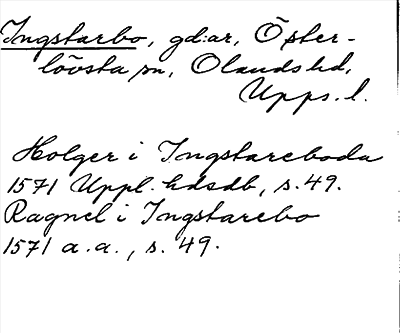 Ingstarbo, gd:ar, Öster-
lövsta sn, Olands hd,
Upps. l.
Holger i Ingstareboda
1571 Uppl. hdsdb, s. 49.
Ragnel i Ingstarebo
1571 a. a., s. 49.